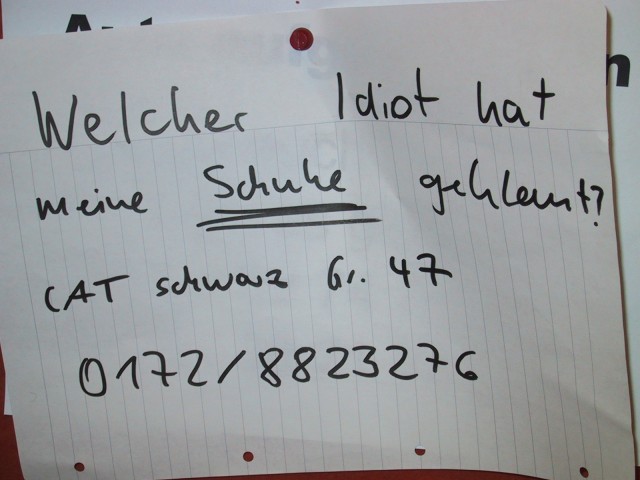 Welcher Idiot hat
meine Schuhe geklaut?
CAT schwarz Gr. 47
0172/8823276